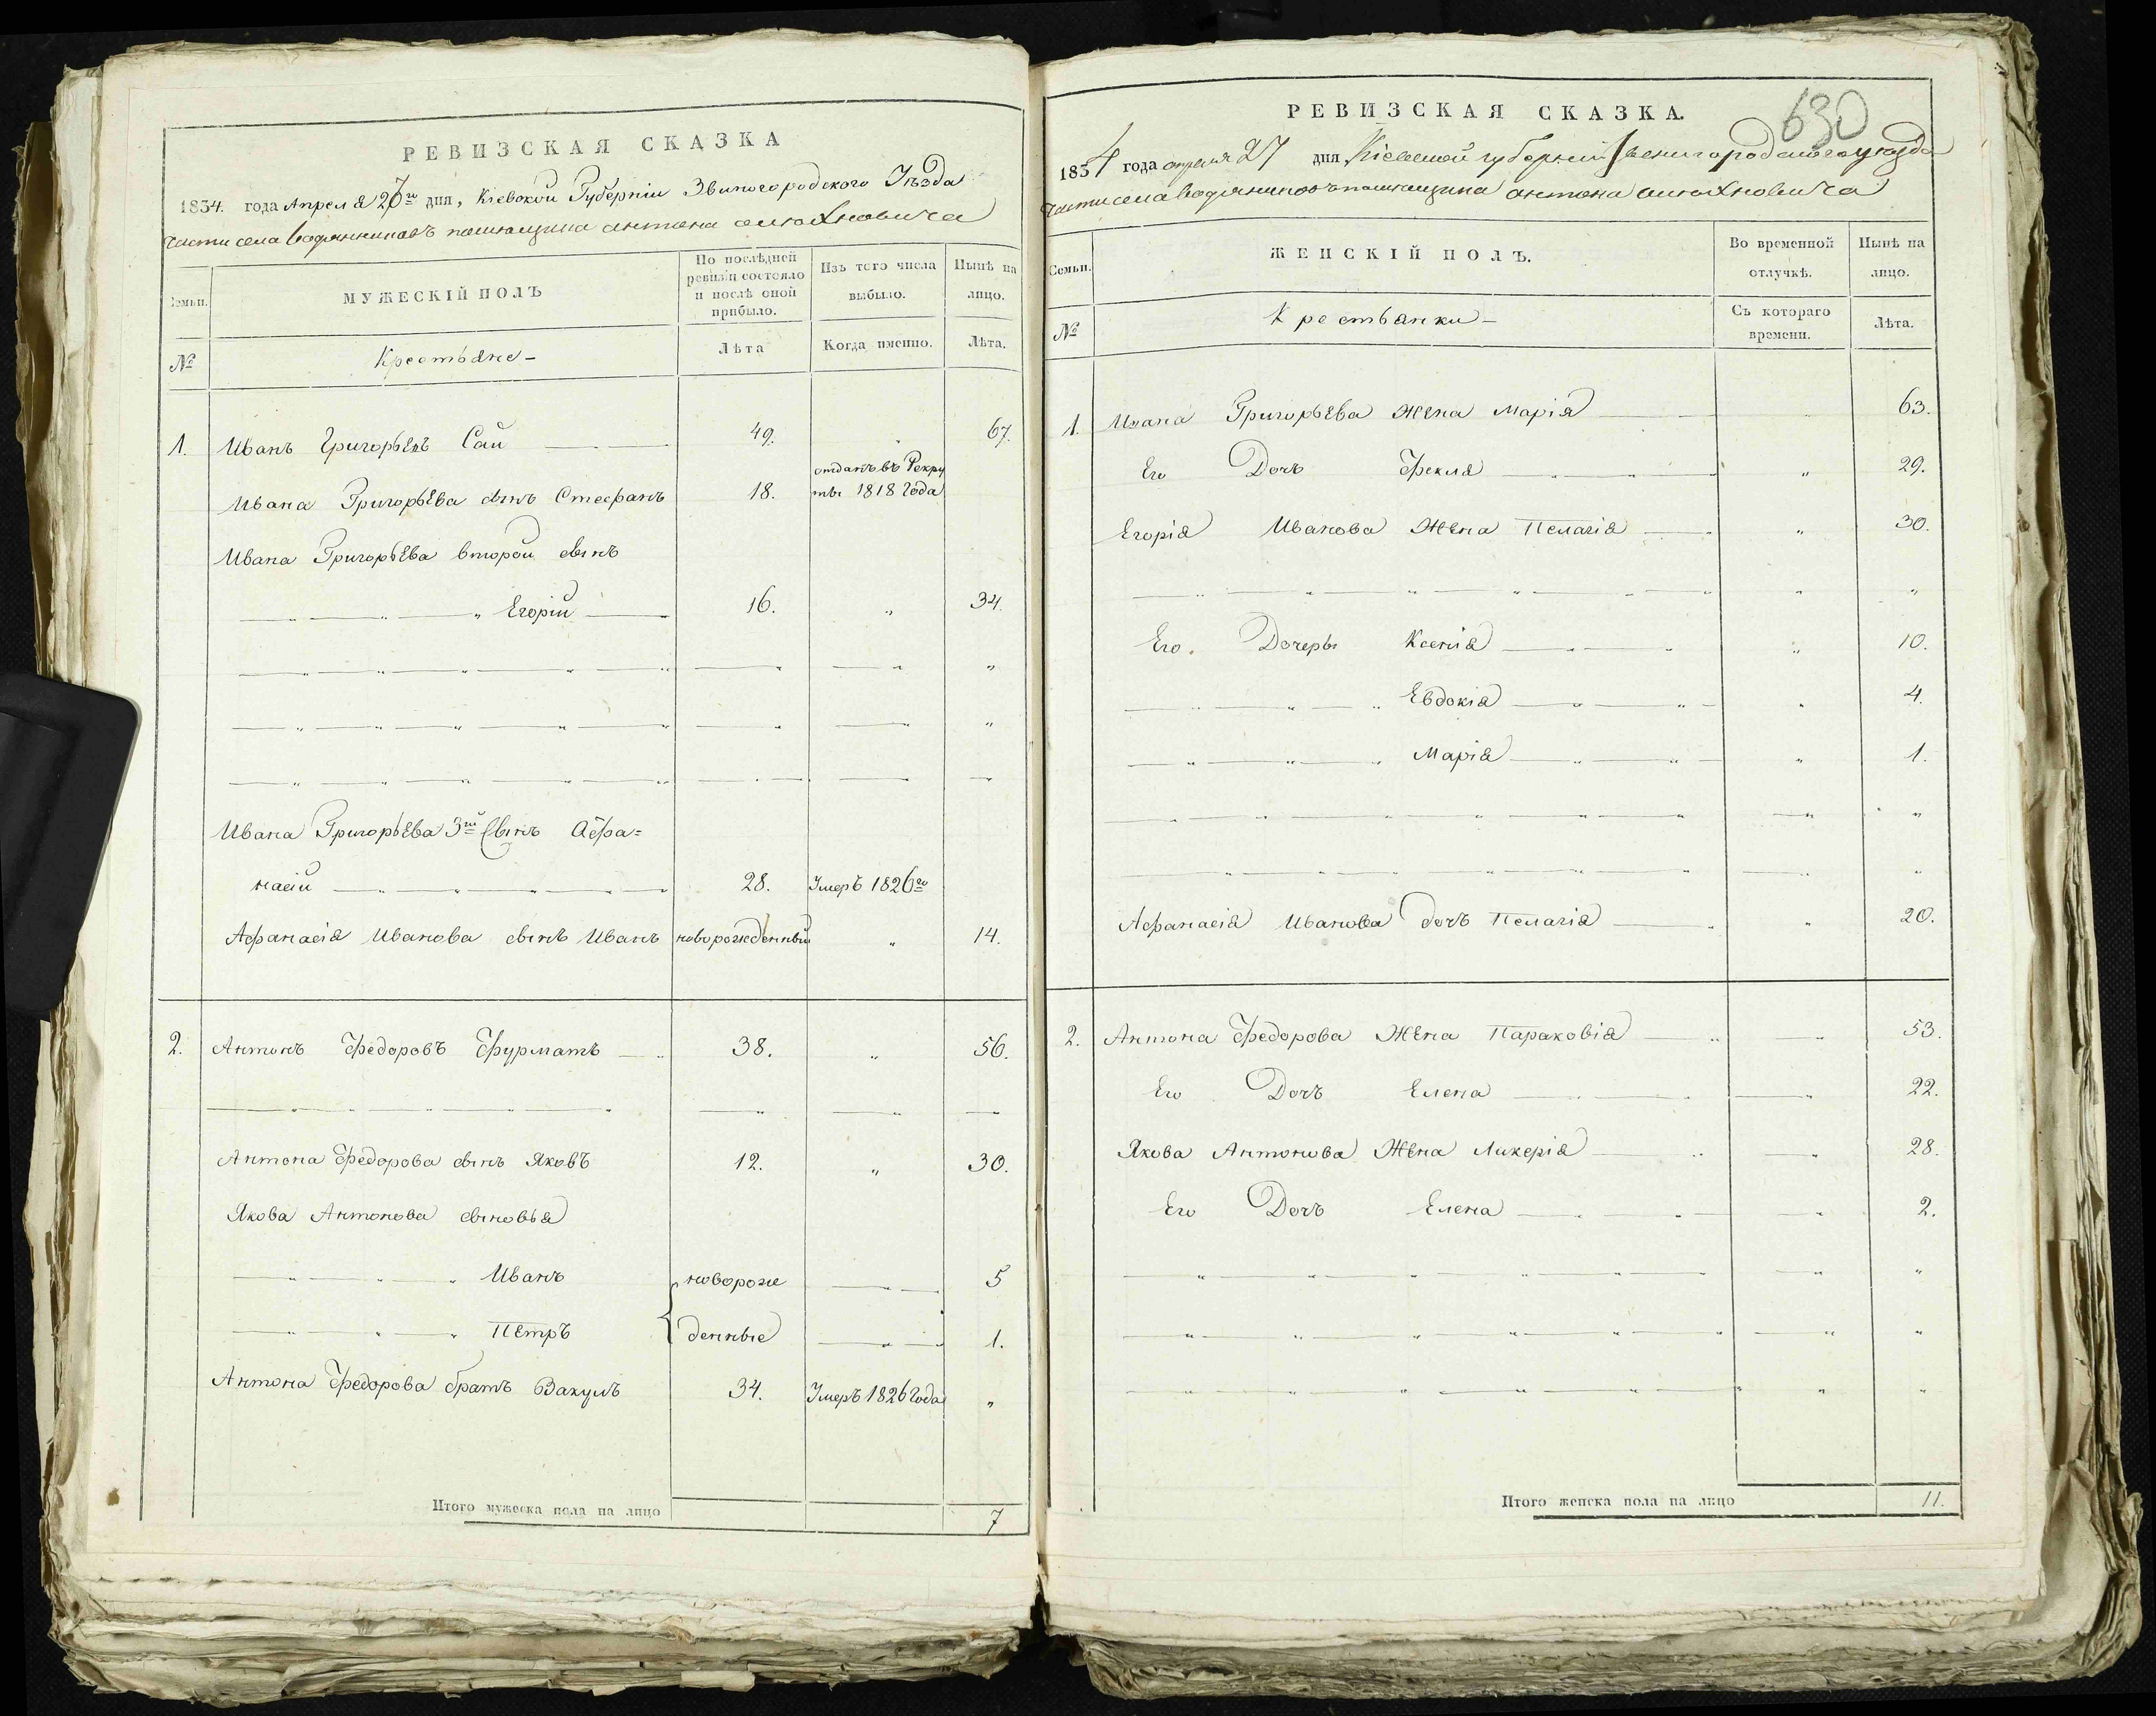 РЕВИЗСКАЯ СКАЗКА
1834. года Апреля 27го дня, Кіевской Губерніи Звиногородского Уѣзда
части села Водяниковъ помещика антона
Семьи.
МУЖЕСКІЙ ПОЛЪ
По послѣдней ревизіи состояло и послѣ оной прибыло.
Изъ того числа выбыло.
Нынѣ на лицо.
№
Крестьяне
Лѣта
Когда именно.
Лѣта.
1. Иванъ Григорьевъ Сай 49. 67.
Ивана Григорьева сынъ Стефанъ 18. отданъ въ Рекру
ты 1818 года
Ивана Григорьева второй сынъ
Егорій 16. „ 34.
Ивана Григорьева 3ій Сынъ Афа=
насій 28. Умеръ 1826го
Афанасія Иванова сынъ Иванъ новорожденный „ 14.
2. Антонъ Федоровъ Фурматъ 38. „ 56.
Антона Федорова сынъ Яковъ 12. „ 30.
Якова Антонова сыновья
Иванъ новорож 5
Петръ денные 1.
Антона Федорова братъ Вакулъ 34. Умеръ 1826 года „
Итого мужеска пола на лицо 7
630
РЕВИЗСКАЯ СКАЗКА.
1834 года апреля 27 дня Кіевской губерніи Звенигородского уѣзда
части села Водяниковъ помещика антона
Семьи.
ЖЕНСКІЙ ПОЛЪ.
Во временной отлучкѣ.
Нынѣ на лицо.
№
Крестьянки
Съ котораго времени.
Лѣта.
1. Ивана Григорьева Жена Марія 63.
Его Дочь Фекла „ 29.
Егорія Иванова Жена Пелагія „ 30.
Его Дочеры Ксенія „ 10.
Евдокія „ 4.
Марія „ 1.
Афанасія Иванова дочь Пелагія „ 20.
2. Антона Федорова Жена Параковія 53.
Его Дочь Елена 22.
Якова Антонова Жена Ликерія 28.
Его Дочь Елена 2.
Итого женска пола на лицо 11.